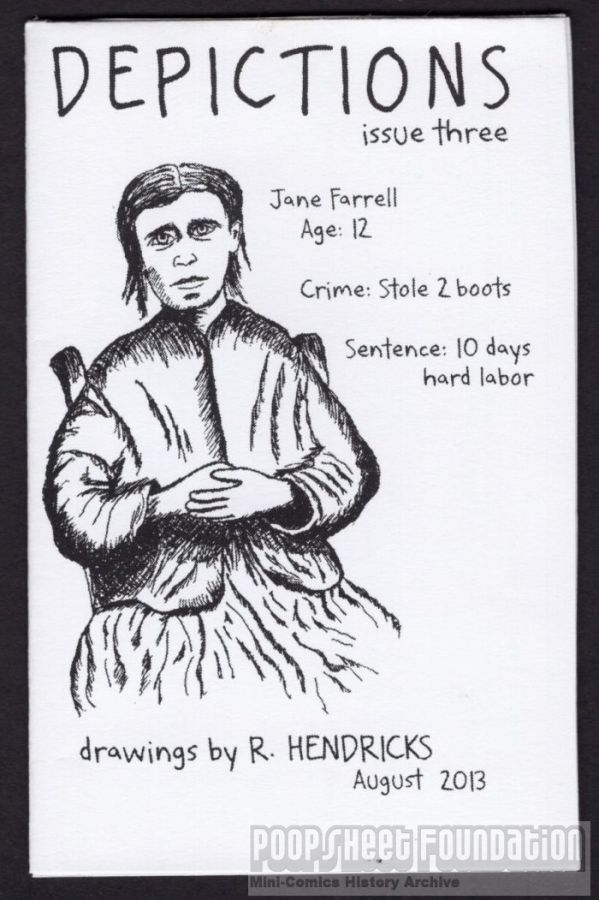 DEPICTIONS
issue three
Jane Farrell
Age: 12
Crime: Stole 2 boots
Sentence: 10 days
hard labor
drawings by R. HENDRICKS
August 2013
POOPSHEET FOUNDATION
Mini-Comics History Archive